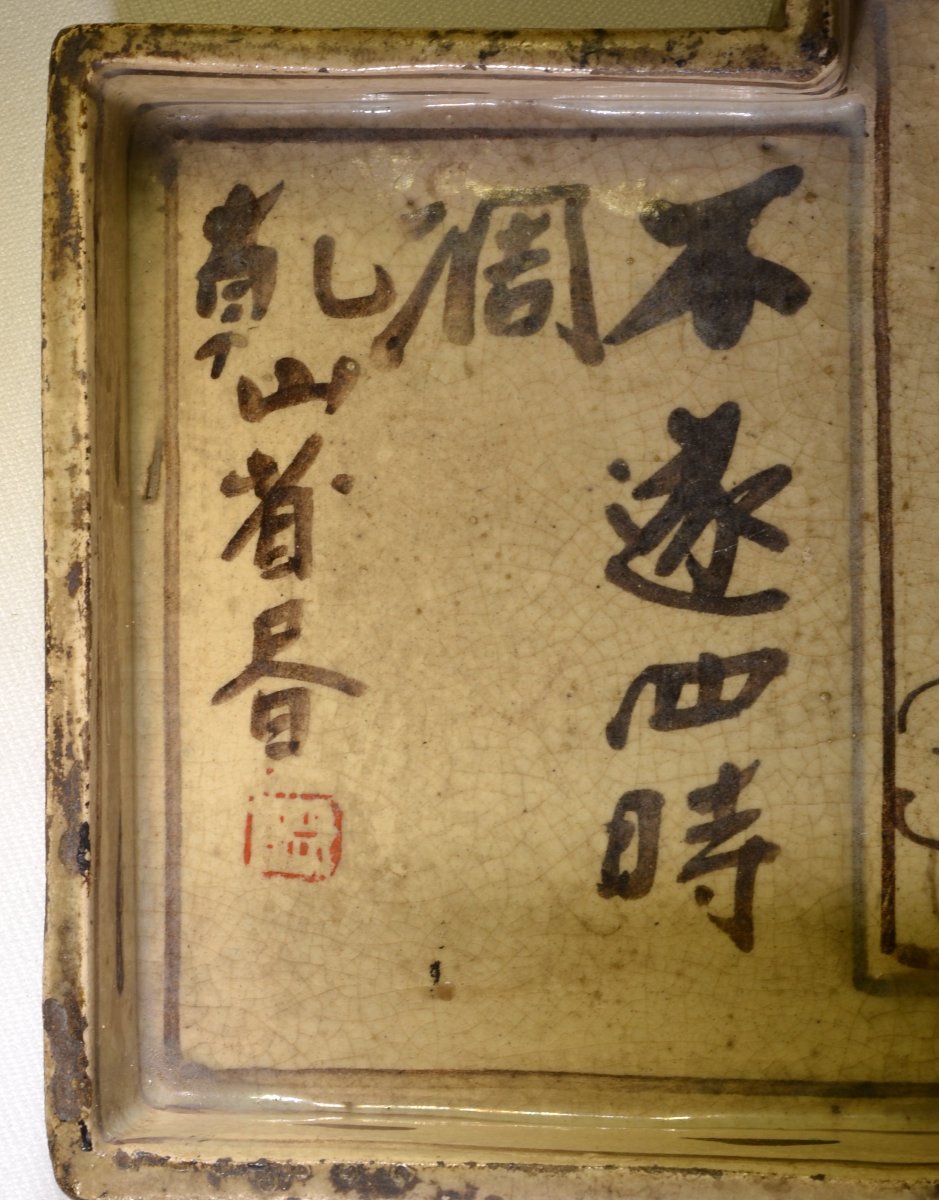 不逐四時
凋
乾山省書